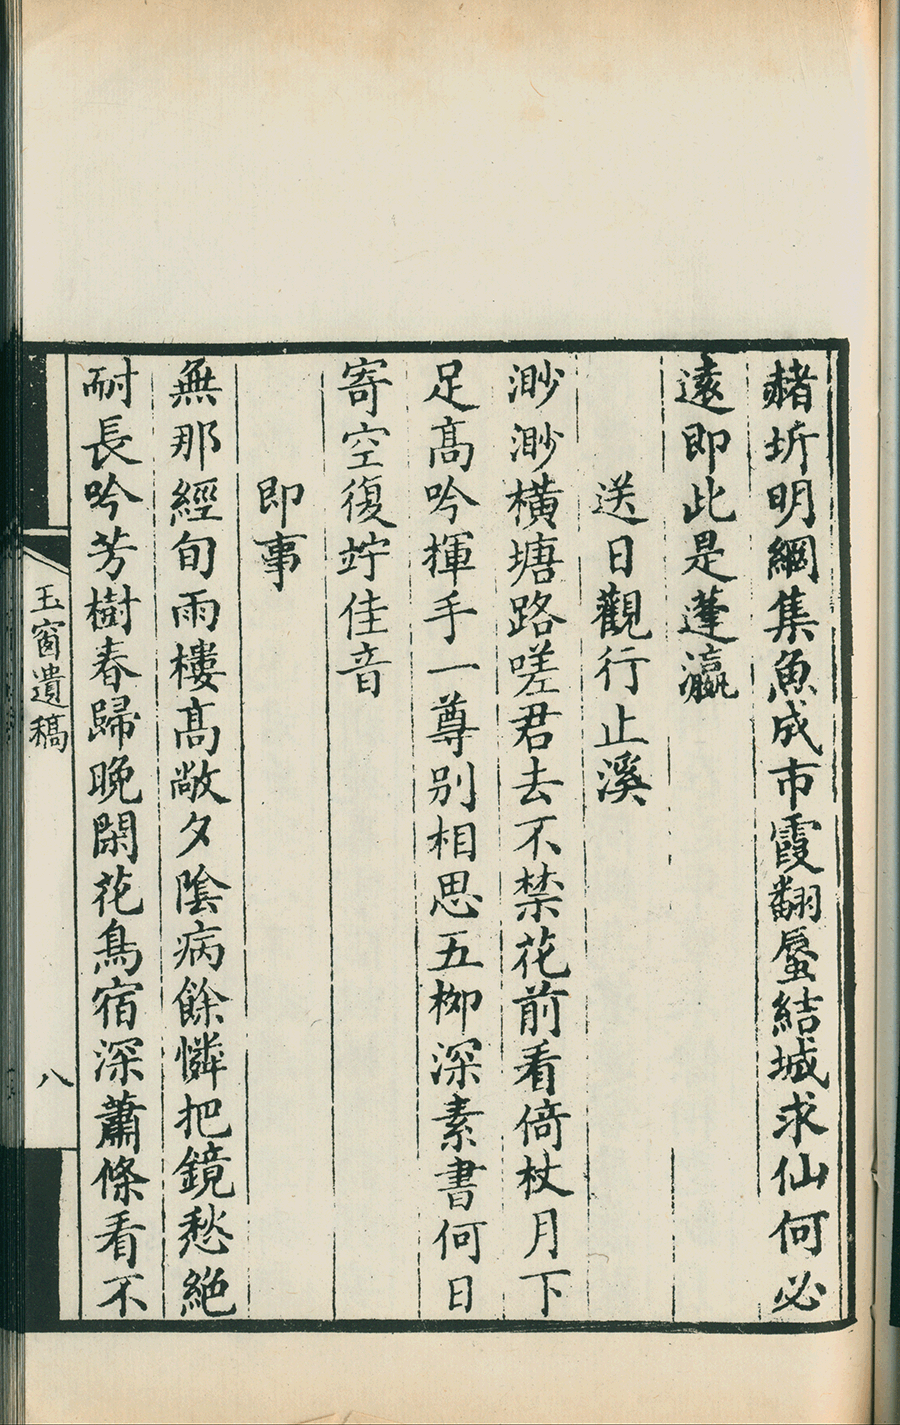 赭圻明網集魚成市霞翻蜃結城求仙何必
遠即此是蓬瀛
送日觀行止溪
渺渺橫塘路嗟君去不禁花前看倚杖月下
足高吟揮手一尊别相思五柳深素書何日
寄空復竚佳音
即事
無那經旬雨樓高敞夕陰病餘憐把鏡愁絕
耐長吟芳樹春歸晚閑花鳥宿深蕭條看不
玉窗遺稿
八